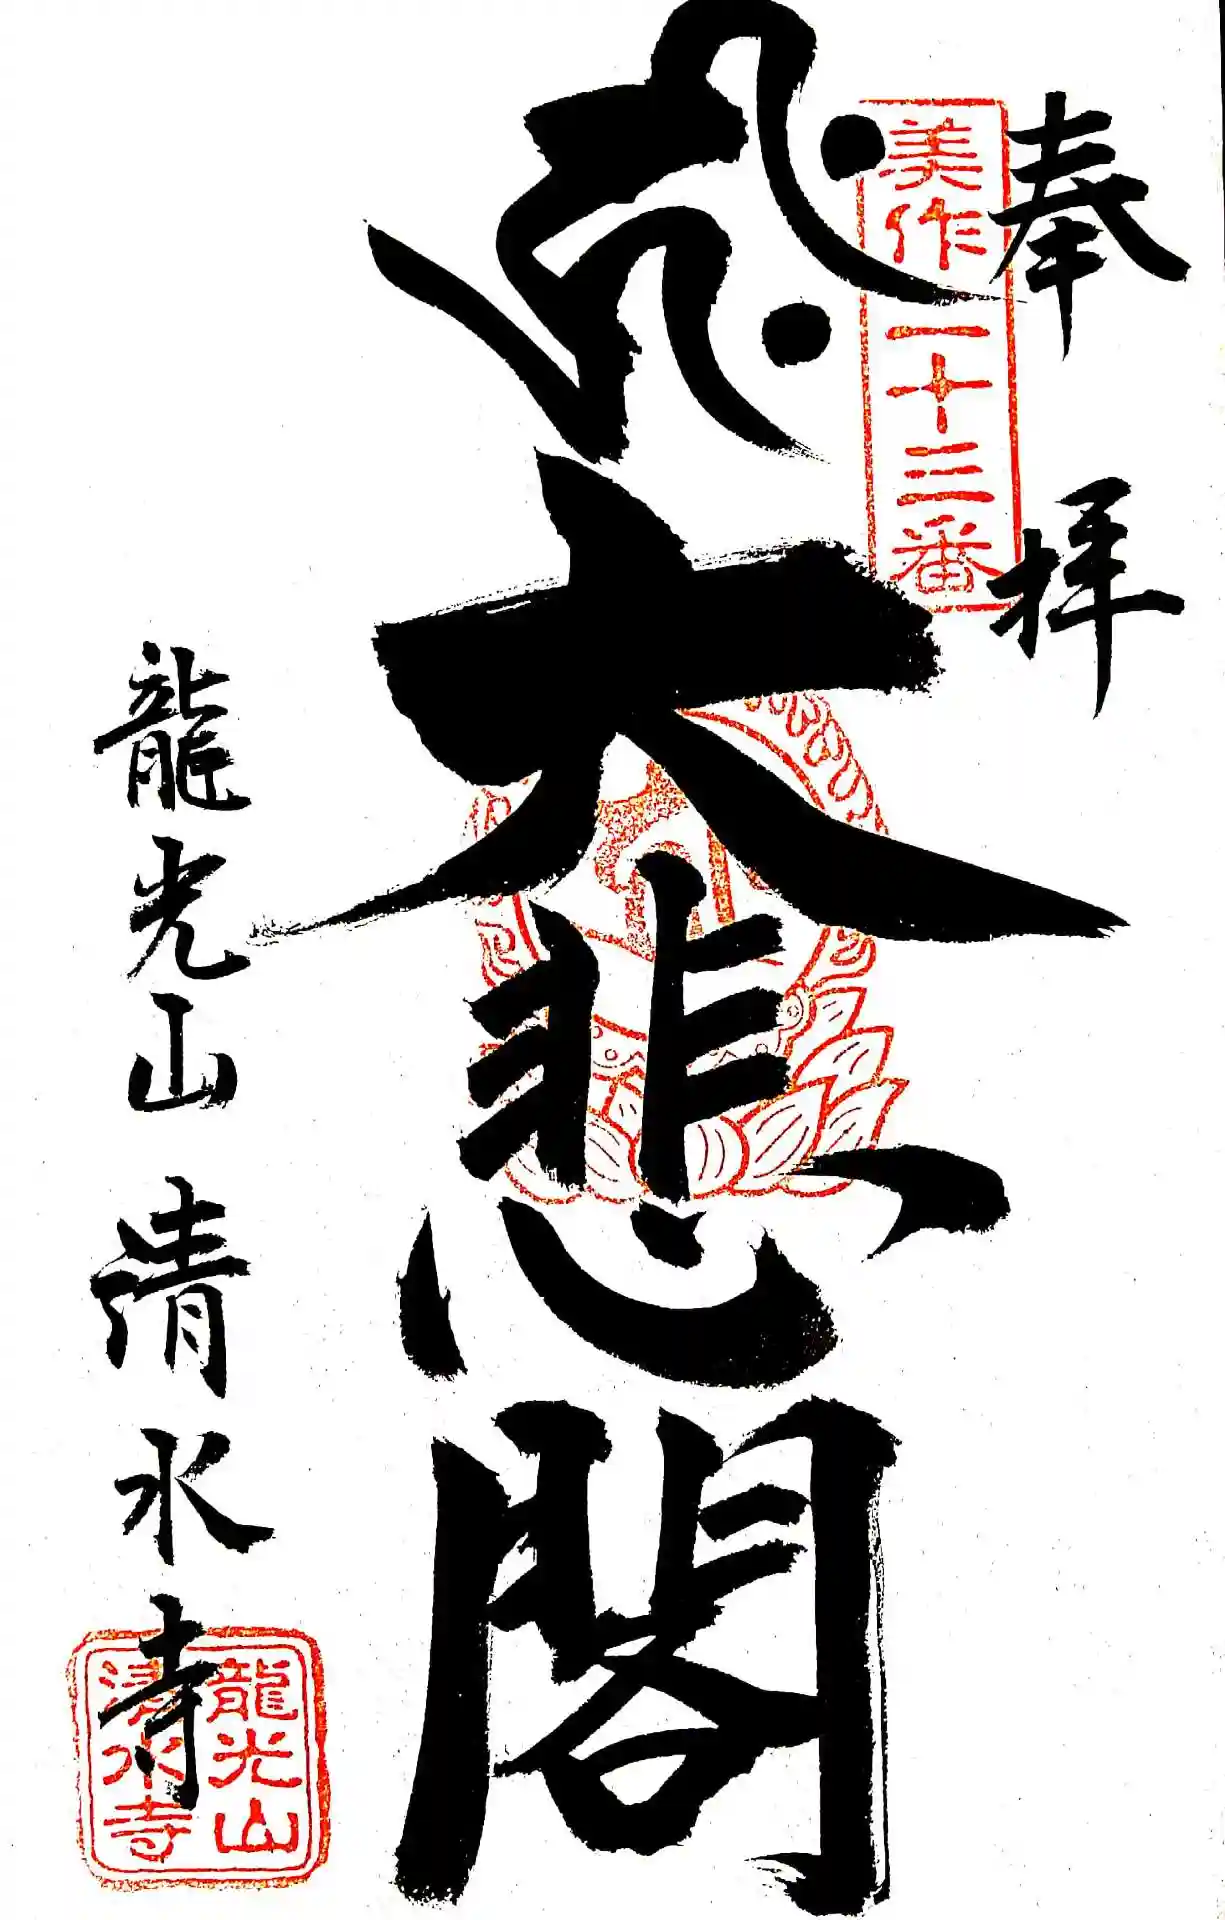 奉拝
美作二十三番
大悲閣
龍光山 清水寺
龍光山
清水寺